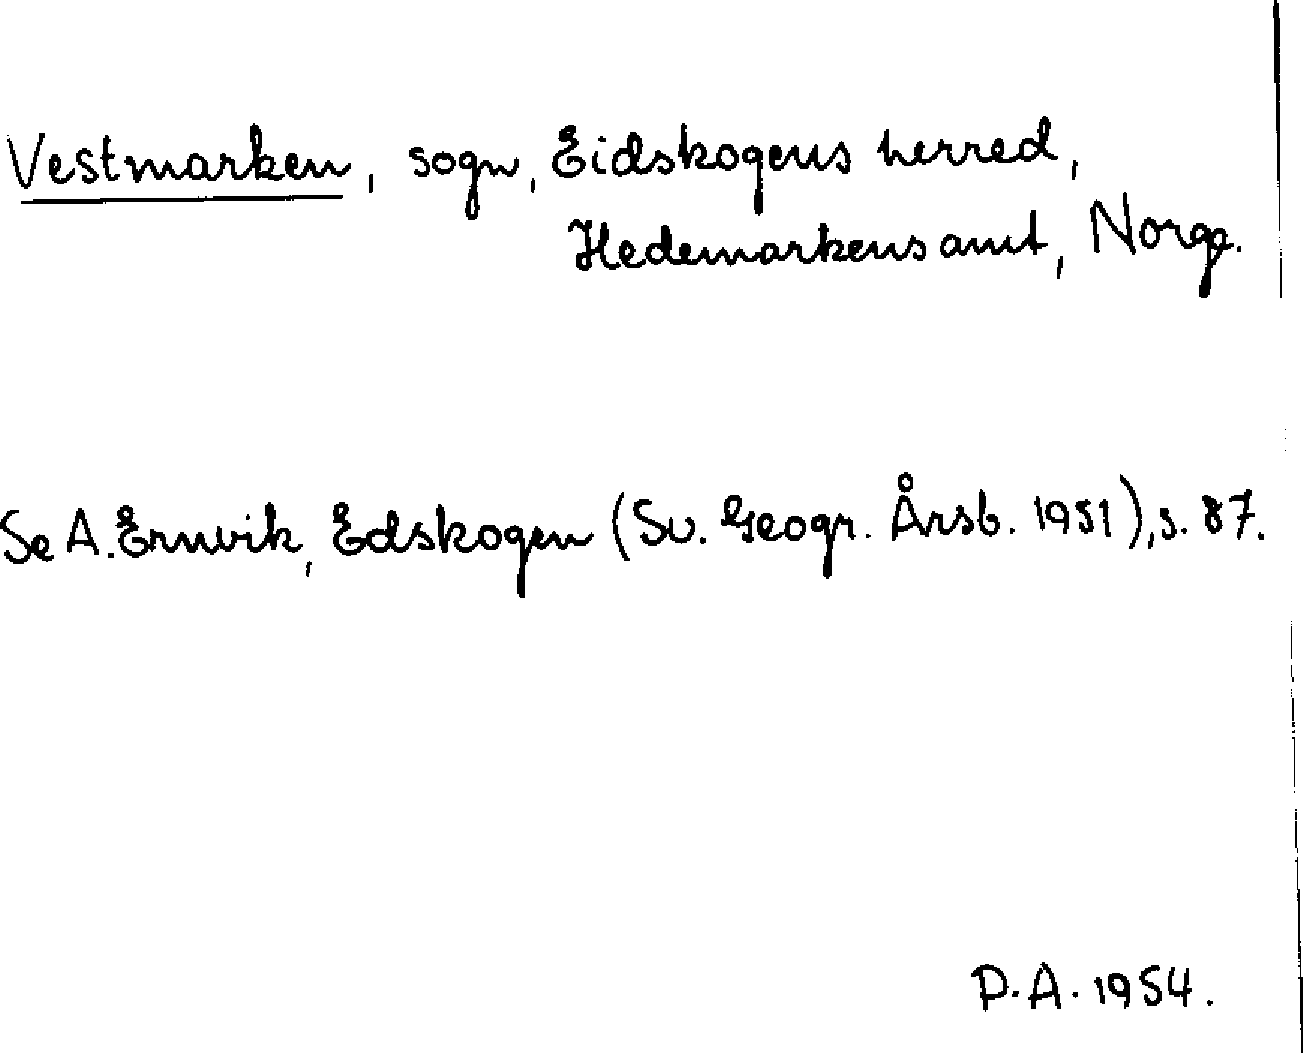 Vestmarken, sogn, Eidskogens herred,
Hedemarkens amt, Norge.
Se A. Ernvik, Edskogen (Sv. Geogr. Årsb. 1951), s. 87.
D.A. 1954.